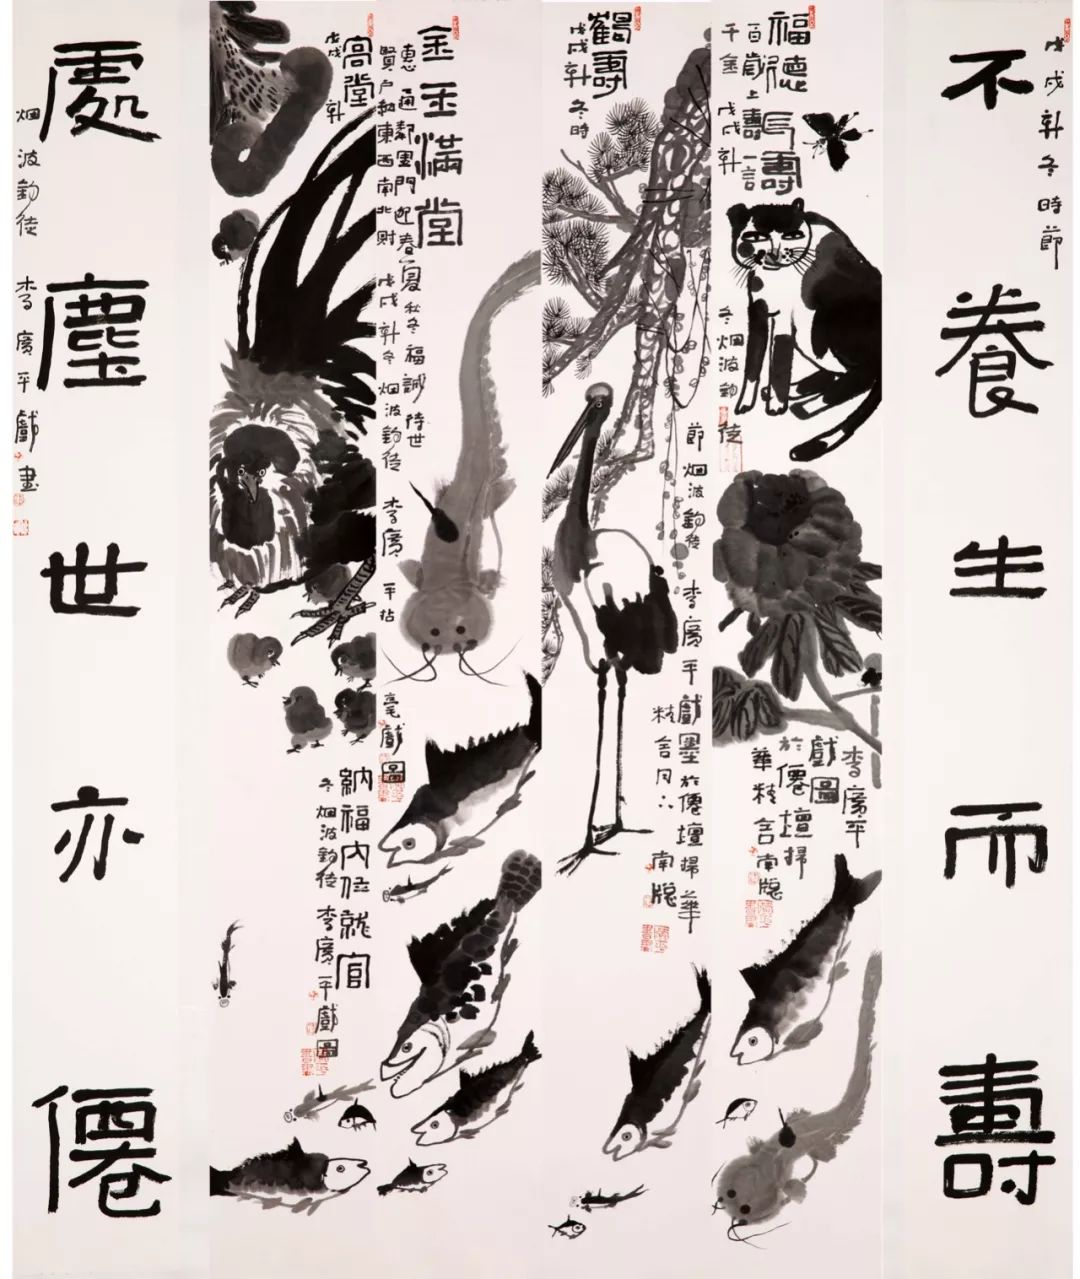 不養生而壽
戊戌新冬時節
福德壽
百歲上壽一言
千金 戊戌新
冬烟波釣徒
李廣平
戲圖
於僊壇掃
華精舍南牕
鶴壽
戊戌新冬時
節烟波釣徒李廣平戲墨於僊壇掃華
精舍南牕
金玉滿堂
惠通鄰里門迎春夏秋冬福誠待世
賢戶納東西南北財戊戌新冬烟波釣徒李廣平拈
毫戲圖
高堂
戊戌新
納福內位就官
冬烟波釣徒李廣平戲圖
處塵世亦僊
烟波釣徒李廣平戲畫